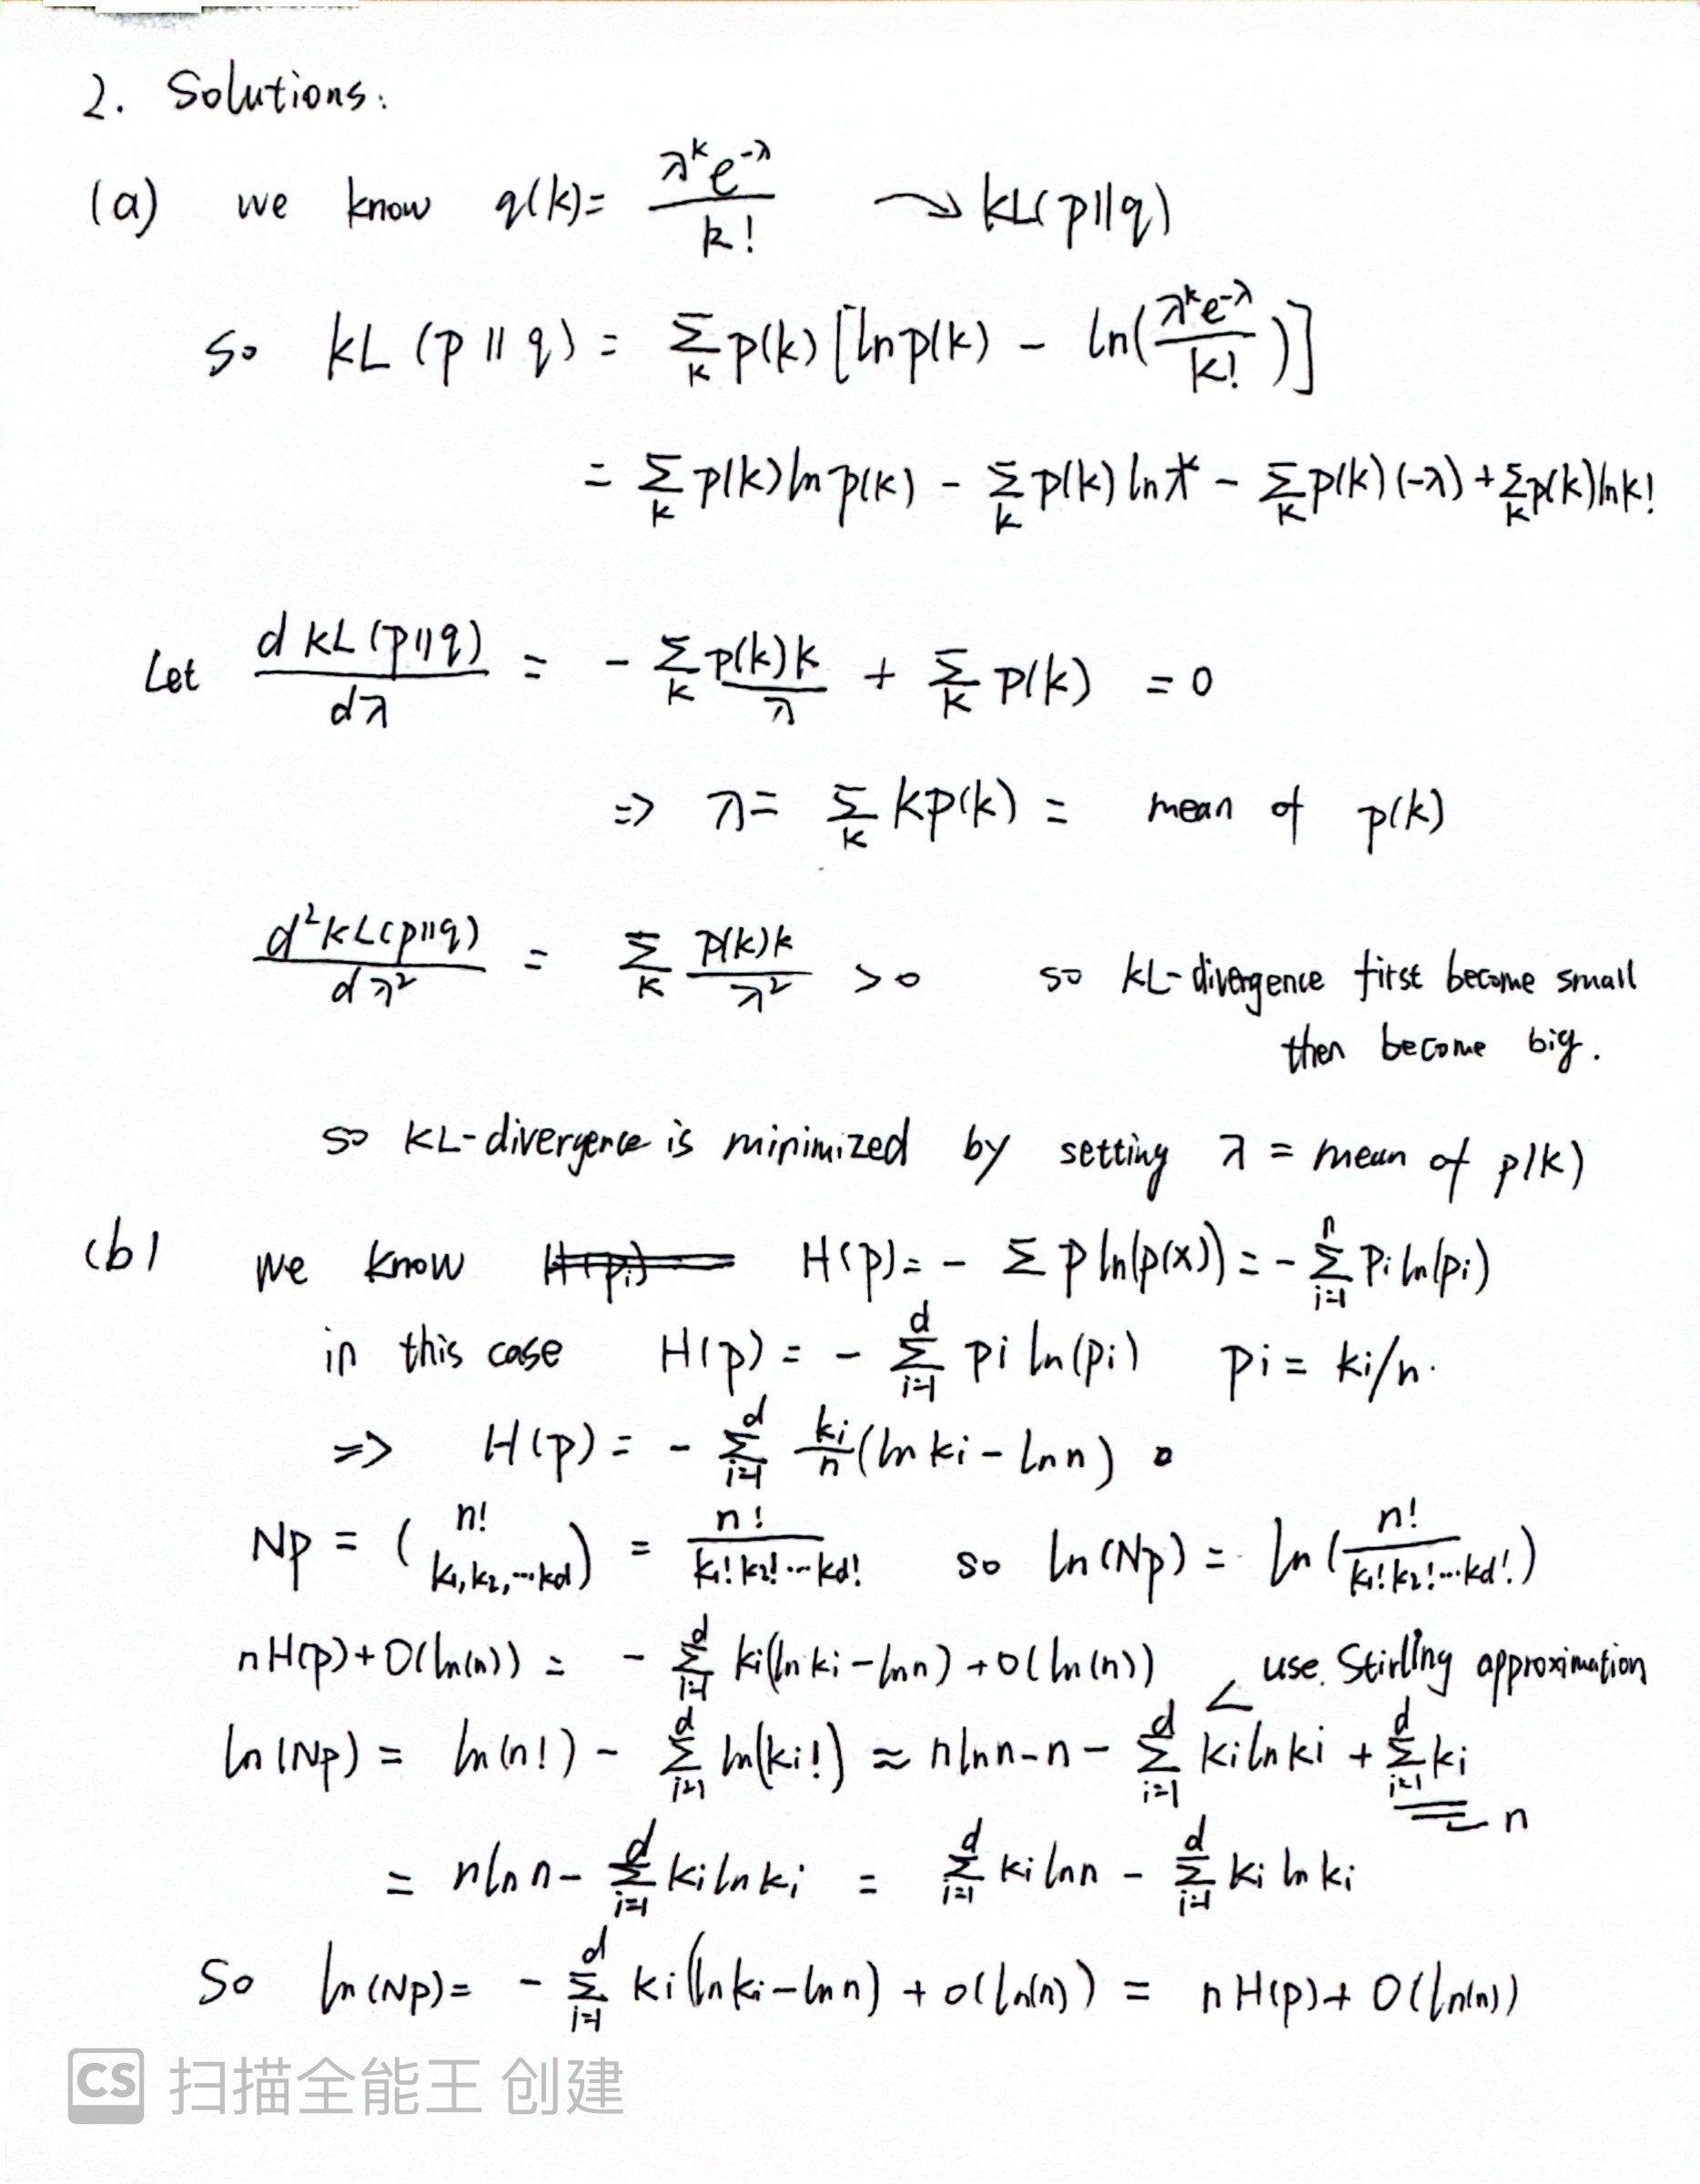 2. Solutions:
(a) we know q(k) = λ^k e^{-λ} / k! ⤳ KL(p||q)
so KL(p||q) = Σ_k p(k) [ln p(k) - ln(λ^k e^{-λ} / k!)]
= Σ_k p(k) ln p(k) - Σ_k p(k) ln λ^k - Σ_k p(k)(-λ) + Σ_k p(k) ln k!
Let d KL(p||q) / dλ = - Σ_k p(k)k / λ + Σ_k p(k) = 0
=> λ = Σ_k k p(k) = mean of p(k)
d²KL(p||q) / dλ² = Σ_k p(k)k / λ² > 0 so KL-divergence first become small
then become big.
so KL-divergence is minimized by setting λ = mean of p(k)
(b) we know H(p_i) H(p) = - Σ p ln(p(x)) = - Σ_{i=1}^n P_i ln(p_i)
in this case H(p) = - Σ_{i=1}^d p_i ln(p_i) p_i = k_i/n.
=> H(p) = - Σ_{i=1}^d k_i/n (ln k_i - ln n)
Np = (n! k_1, k_2, ... k_d) = n! / k_1! k_2! ... k_d! so ln(Np) = ln(n! / k_1! k_2! ... k_d!)
nH(p) + O(ln(n)) = - Σ_{i=1}^d k_i(ln k_i - ln n) + O(ln(n)) use Stirling approximation
ln(Np) = ln(n!) - Σ_{i=1}^d ln(k_i!) ≈ n ln n - n - Σ_{i=1}^d k_i ln k_i + Σ_{i=1}^d k_i
= n
= n ln n - Σ_{i=1}^d k_i ln k_i = Σ_{i=1}^d k_i ln n - Σ_{i=1}^d k_i ln k_i
So ln(Np) = - Σ_{i=1}^d k_i(ln k_i - ln n) + O(ln(n)) = nH(p) + O(ln(n))
CS 扫描全能王 创建